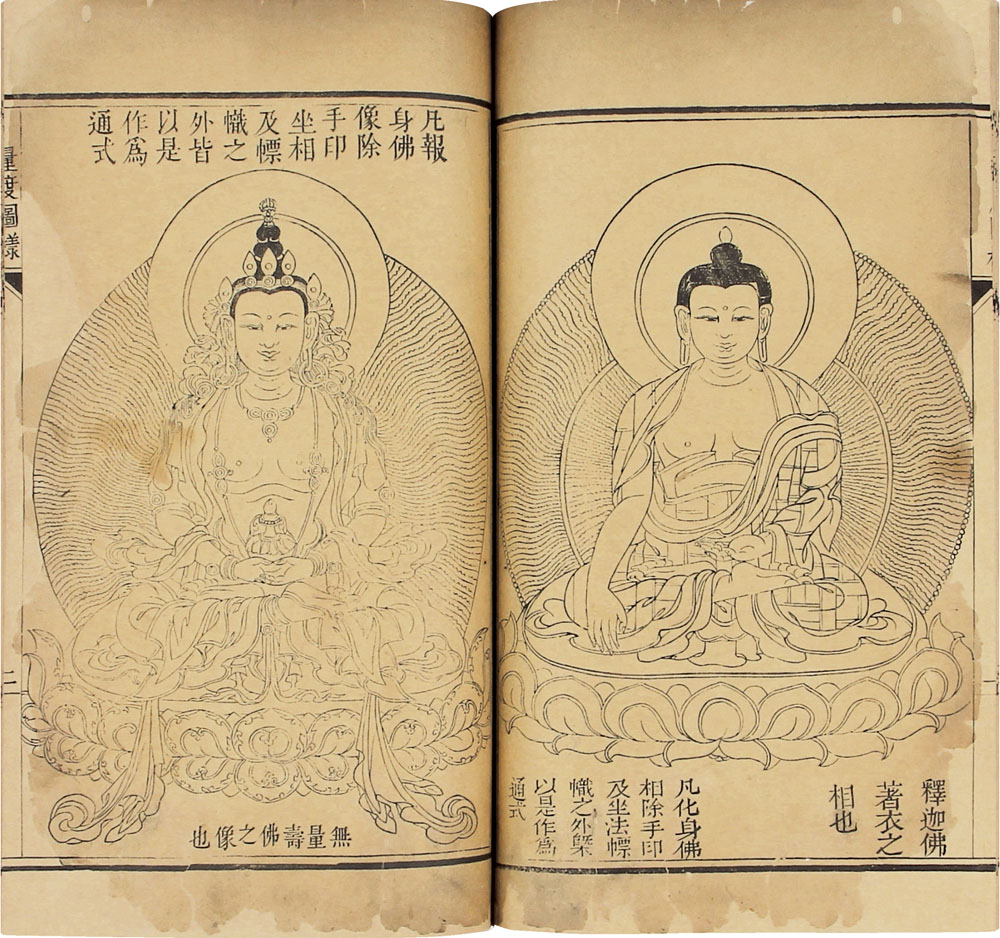 釋迦佛
著衣之
相也
凡化身佛
相除手印
及坐法幖
幟之外槩
以是作爲
通式
凡報
身佛
像除
手印
坐相
及幖
幟之
外皆
以是
作爲
通式
無量壽佛之像也
量度圖樣
二